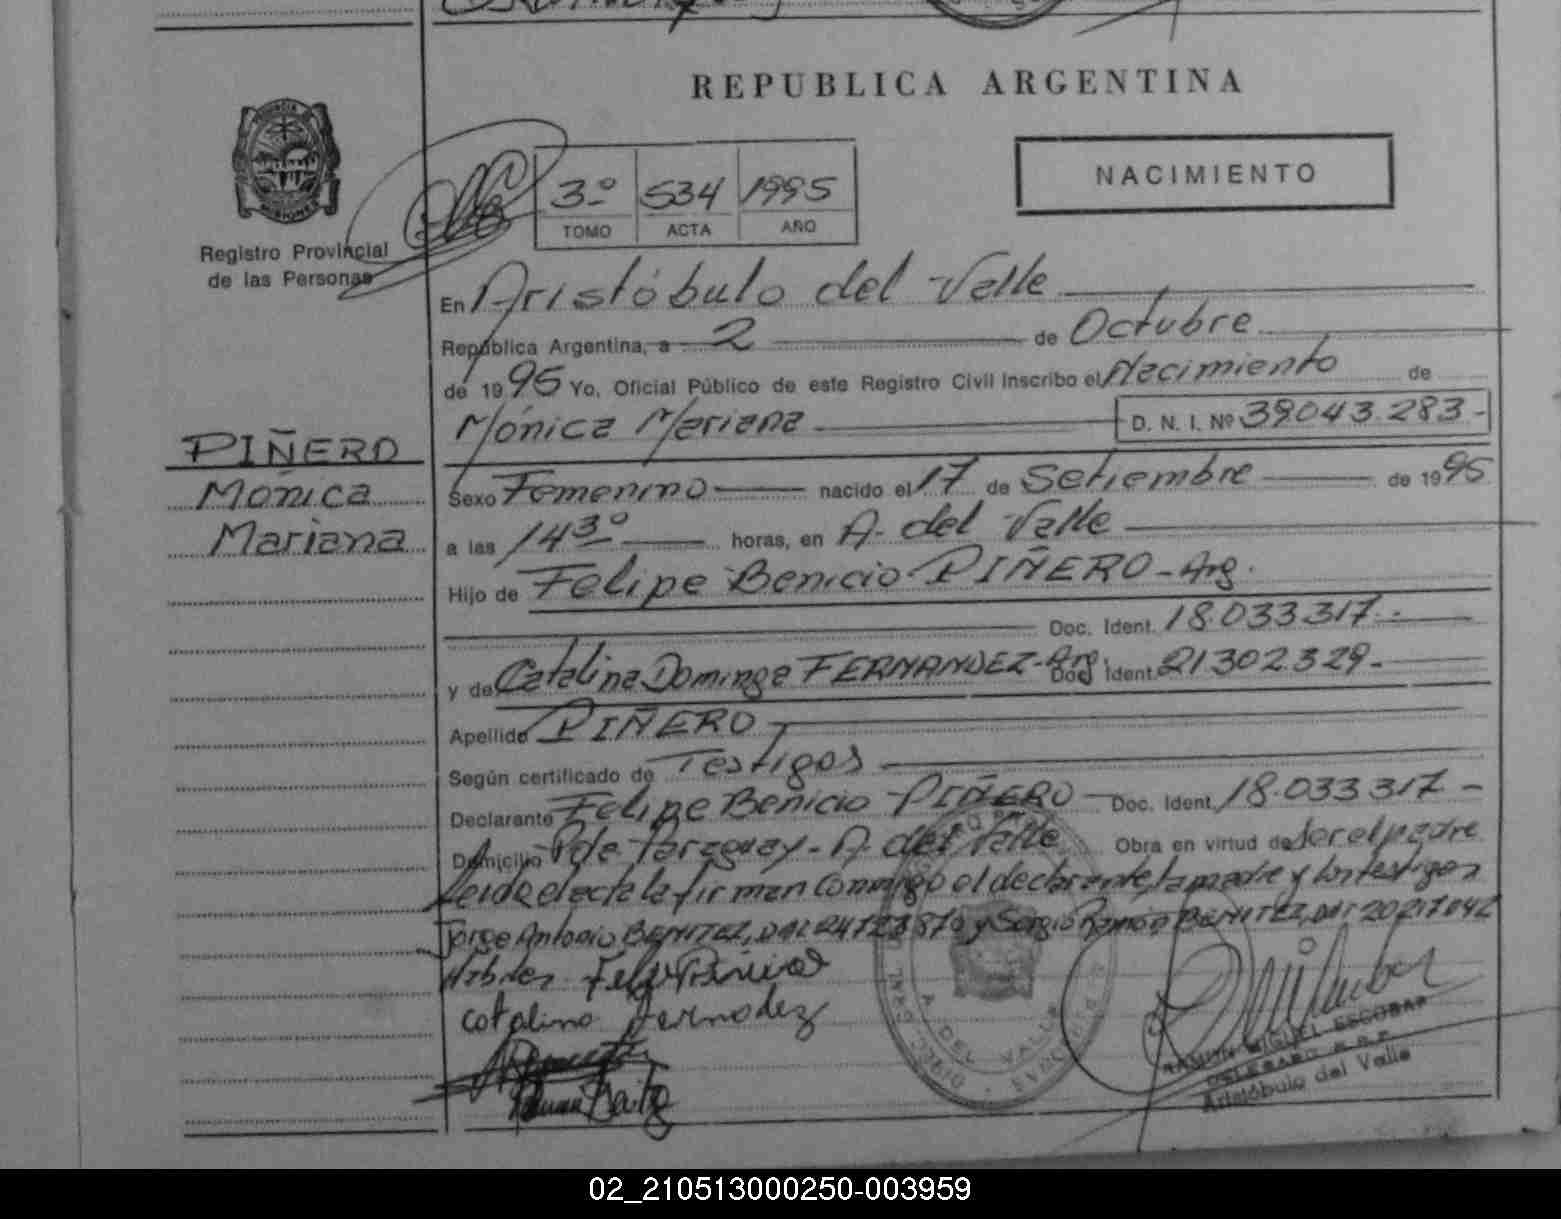 REPUBLICA ARGENTINA
NACIMIENTO
3º 534 1995
TOMO ACTA AÑO
PROVINCIA DE
MISIONES
Registro Provincial
de las Personas
En Aristóbulo del Valle
República Argentina, a 2 de Octubre
de 1995 Yo, Oficial Público de este Registro Civil Inscribo el Nacimiento de
Mónica Mariana D. N. I. Nº 39043.283-
PIÑERO
Mónica
Mariana
Sexo Femenino nacido el 17 de Setiembre de 1995
a las 14 3º horas, en A. del Valle
Hijo de Felipe Benicio PIÑERO - Arg.
Doc. Ident. 18.033.317.-
y de Catalina Dominga FERNANDEZ - Arg. Doc Ident. 21302.329.
Apellido PIÑERO
Según certificado de Testigos
Declarante Felipe Benicio PIÑERO Doc. Ident. 18.033317-
Domicilio Pde Paraguay - A. del Valle Obra en virtud de ser el padre
Leida el acta la firman conmigo el declarante, la madre y los testigos
Jorge Antonio BENITEZ, DNI y Sergio Ramón BENITEZ, DNI
catalino fernodez
A. DEL VALLE
RAMON MIGUEL ESCOBAR
DELEGADO
Aristóbulo del Valle
02_210513000250-003959